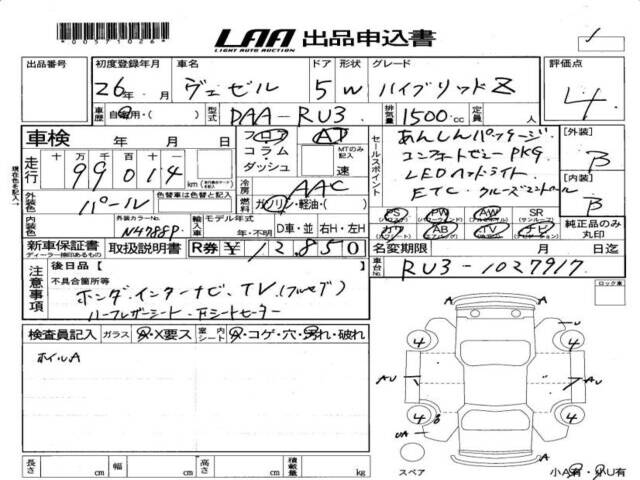 *00571026*
LAA 出品申込書
LIGHT AUTO AUCTION
出品番号 初度登録年月 車名 ドア 形状 グレード 評価点
26年 月 ヴェゼル 5 W ハイブリッドZ 4
車歴 自家用・( ) 型式 DAA-RU3 排気量 1500cc 定員 人
車検 年 月 日 フロア AT セールスポイント あんしんパッケージ [外装]
コラム MTのみ記入 コンフォートビュー PKG B
走行 十万 万 千 百 十 一 99014 km ダッシュ 速 LEDヘッドライト [内装]
冷房 AAC ETC クルーズコントロール B
外装色 パール 色替車は色替と記入 燃料 ガソリン・軽油・( )
PS PW AW SR 純正品のみ丸印
内装色 外装カラーNo. NH788P 輸入車 モデル年式 年・不明 D車・並 右H・左H カワ AB TV ナビ
新車保証書 取扱説明書 R券 ¥ 12,850 名変期限 月 日迄
ディーラー捺印あるもの
車台No. RU3-1027917
注意事項 後日品 [ ] ロック車
不具合箇所等
ホンダ インターナビ、TV(フルセグ)
ハーフレザーシート、前シートヒーター
検査員記入 ガラス A・X要ス 室内シート ・コゲ・穴・汚れ・破れ
ホイルA
A
4 4
AU U
4 4
UA
A
長さ cm 幅 cm 高さ cm 積載量 kg スペア 小A有・小U有
現在色名も記入→